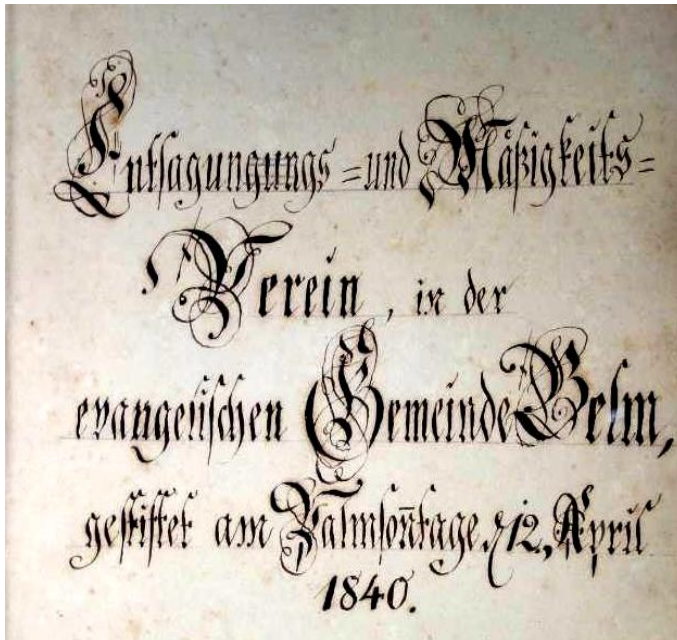 Entsagungungs=und Mäßigkeits=
Verein, in der
evangelischen Gemeinde Belm,
gestiftet am Palmsoñtage, d 12. April
1840.